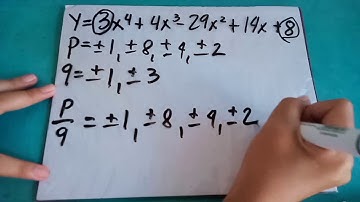 Y = 3x⁴ + 4x³ - 29x² + 14x + 8
P = ±1, ±8, ±4, ±2
q = ±1, ±3
P/q = ±1, ±8, ±4, ±2